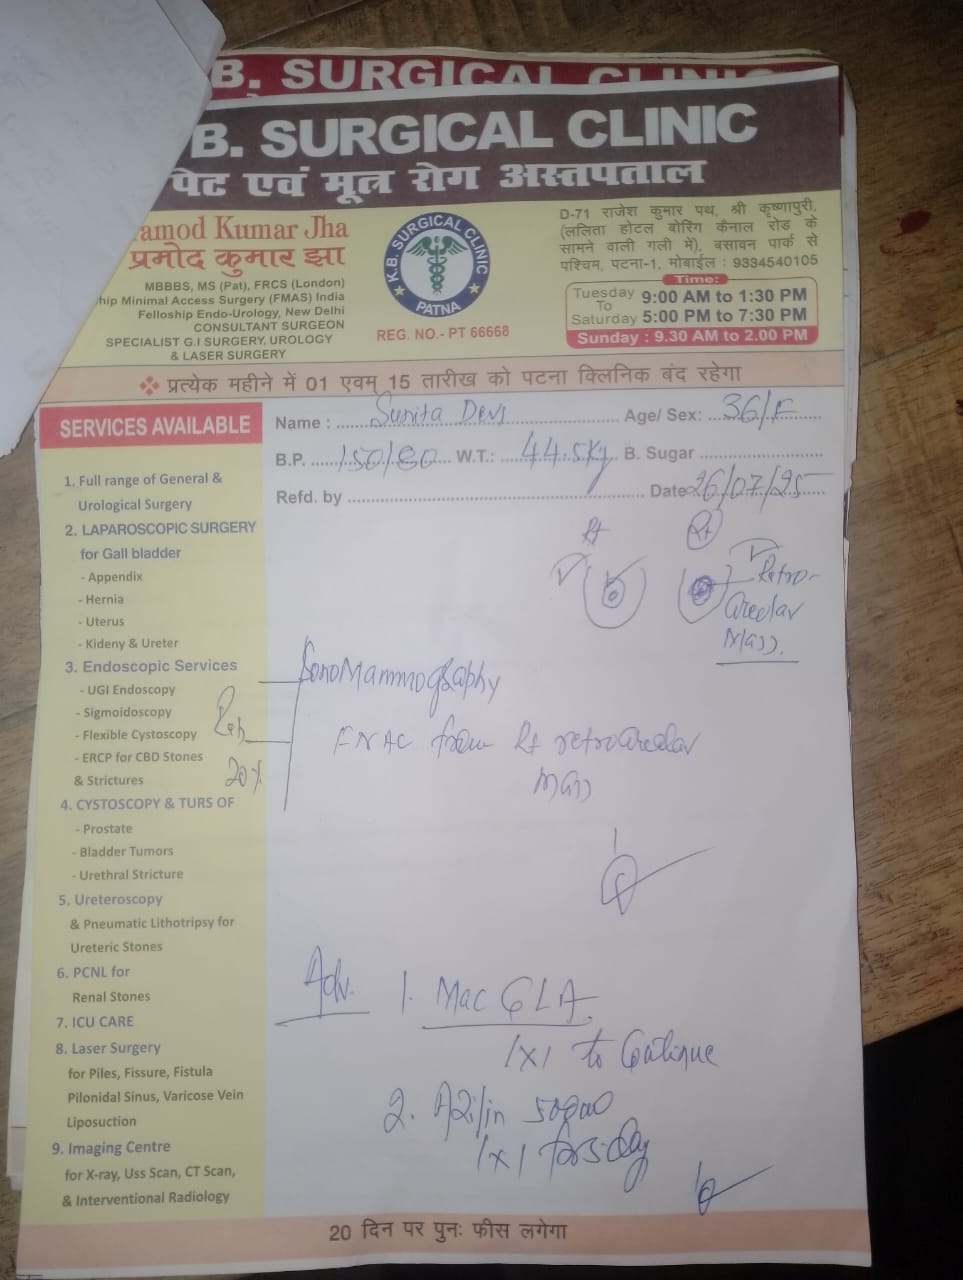 B. SURGICAL CLINIC
B. SURGICAL CLINIC
पेट एवं मूत्र रोग अस्तपताल
amod Kumar Jha
प्रमोद कुमार झा
MBBBS, MS (Pat), FRCS (London)
hip Minimal Access Surgery (FMAS) India
Felloship Endo-Urology, New Delhi
CONSULTANT SURGEON
SPECIALIST G.I SURGERY, UROLOGY
& LASER SURGERY
K.B. SURGICAL CLINIC
PATNA
REG. NO.- PT 66668
D-71 राजेश कुमार पथ, श्री कृष्णापुरी,
(ललिता होटल बोरिंग कैनाल रोड के
सामने वाली गली में), बसावन पार्क से
पश्चिम, पटना-1, मोबाईल : 9334540105
Time:
Tuesday To Saturday
9:00 AM to 1:30 PM
5:00 PM to 7:30 PM
Sunday : 9.30 AM to 2.00 PM
❖ प्रत्येक महीने में 01 एवम् 15 तारीख को पटना क्लिनिक बंद रहेगा
Name : Sunita Devi Age/ Sex: 36/F
B.P. 150/80 W.T.: 44.5kg B. Sugar
Refd. by Date 26/07/25
SERVICES AVAILABLE
1. Full range of General &
Urological Surgery
2. LAPAROSCOPIC SURGERY
for Gall bladder
- Appendix
- Hernia
- Uterus
- Kideny & Ureter
3. Endoscopic Services
- UGI Endoscopy
- Sigmoidoscopy
- Flexible Cystoscopy
- ERCP for CBD Stones
& Strictures
4. CYSTOSCOPY & TURS OF
- Prostate
- Bladder Tumors
- Urethral Stricture
5. Ureteroscopy
& Pneumatic Lithotripsy for
Ureteric Stones
6. PCNL for
Renal Stones
7. ICU CARE
8. Laser Surgery
for Piles, Fissure, Fistula
Pilonidal Sinus, Varicose Vein
Liposuction
9. Imaging Centre
for X-ray, Uss Scan, CT Scan,
& Interventional Radiology
Rt
Retro-
areolar
Mass.
SonoMammography
FNAC from Rt retroareolar
Mass
20%
Adv.
1. Mac GLA
1x1 to Continue
2. Azilin 500mg
1x1 for 5 day
20 दिन पर पुनः फीस लगेगा